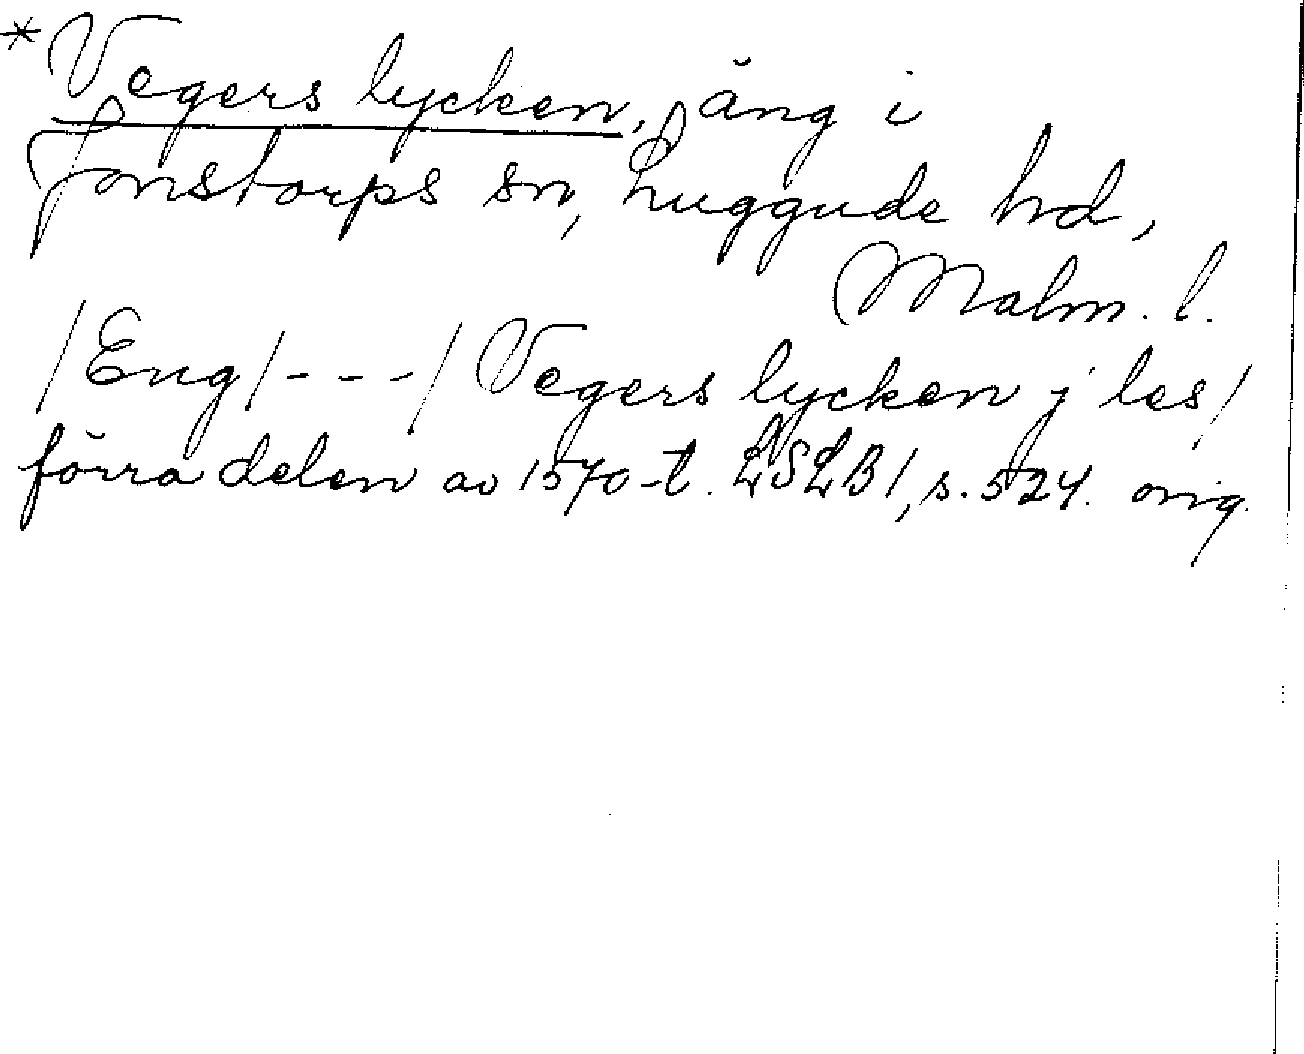 *Vegers lycken, äng i
Jonstorps sn, Luggude hd,
Malm. l.
/Eng/---/ Vegers lycken j les/
förra delen av 1570-t. LSLB1, s. 524. orig.